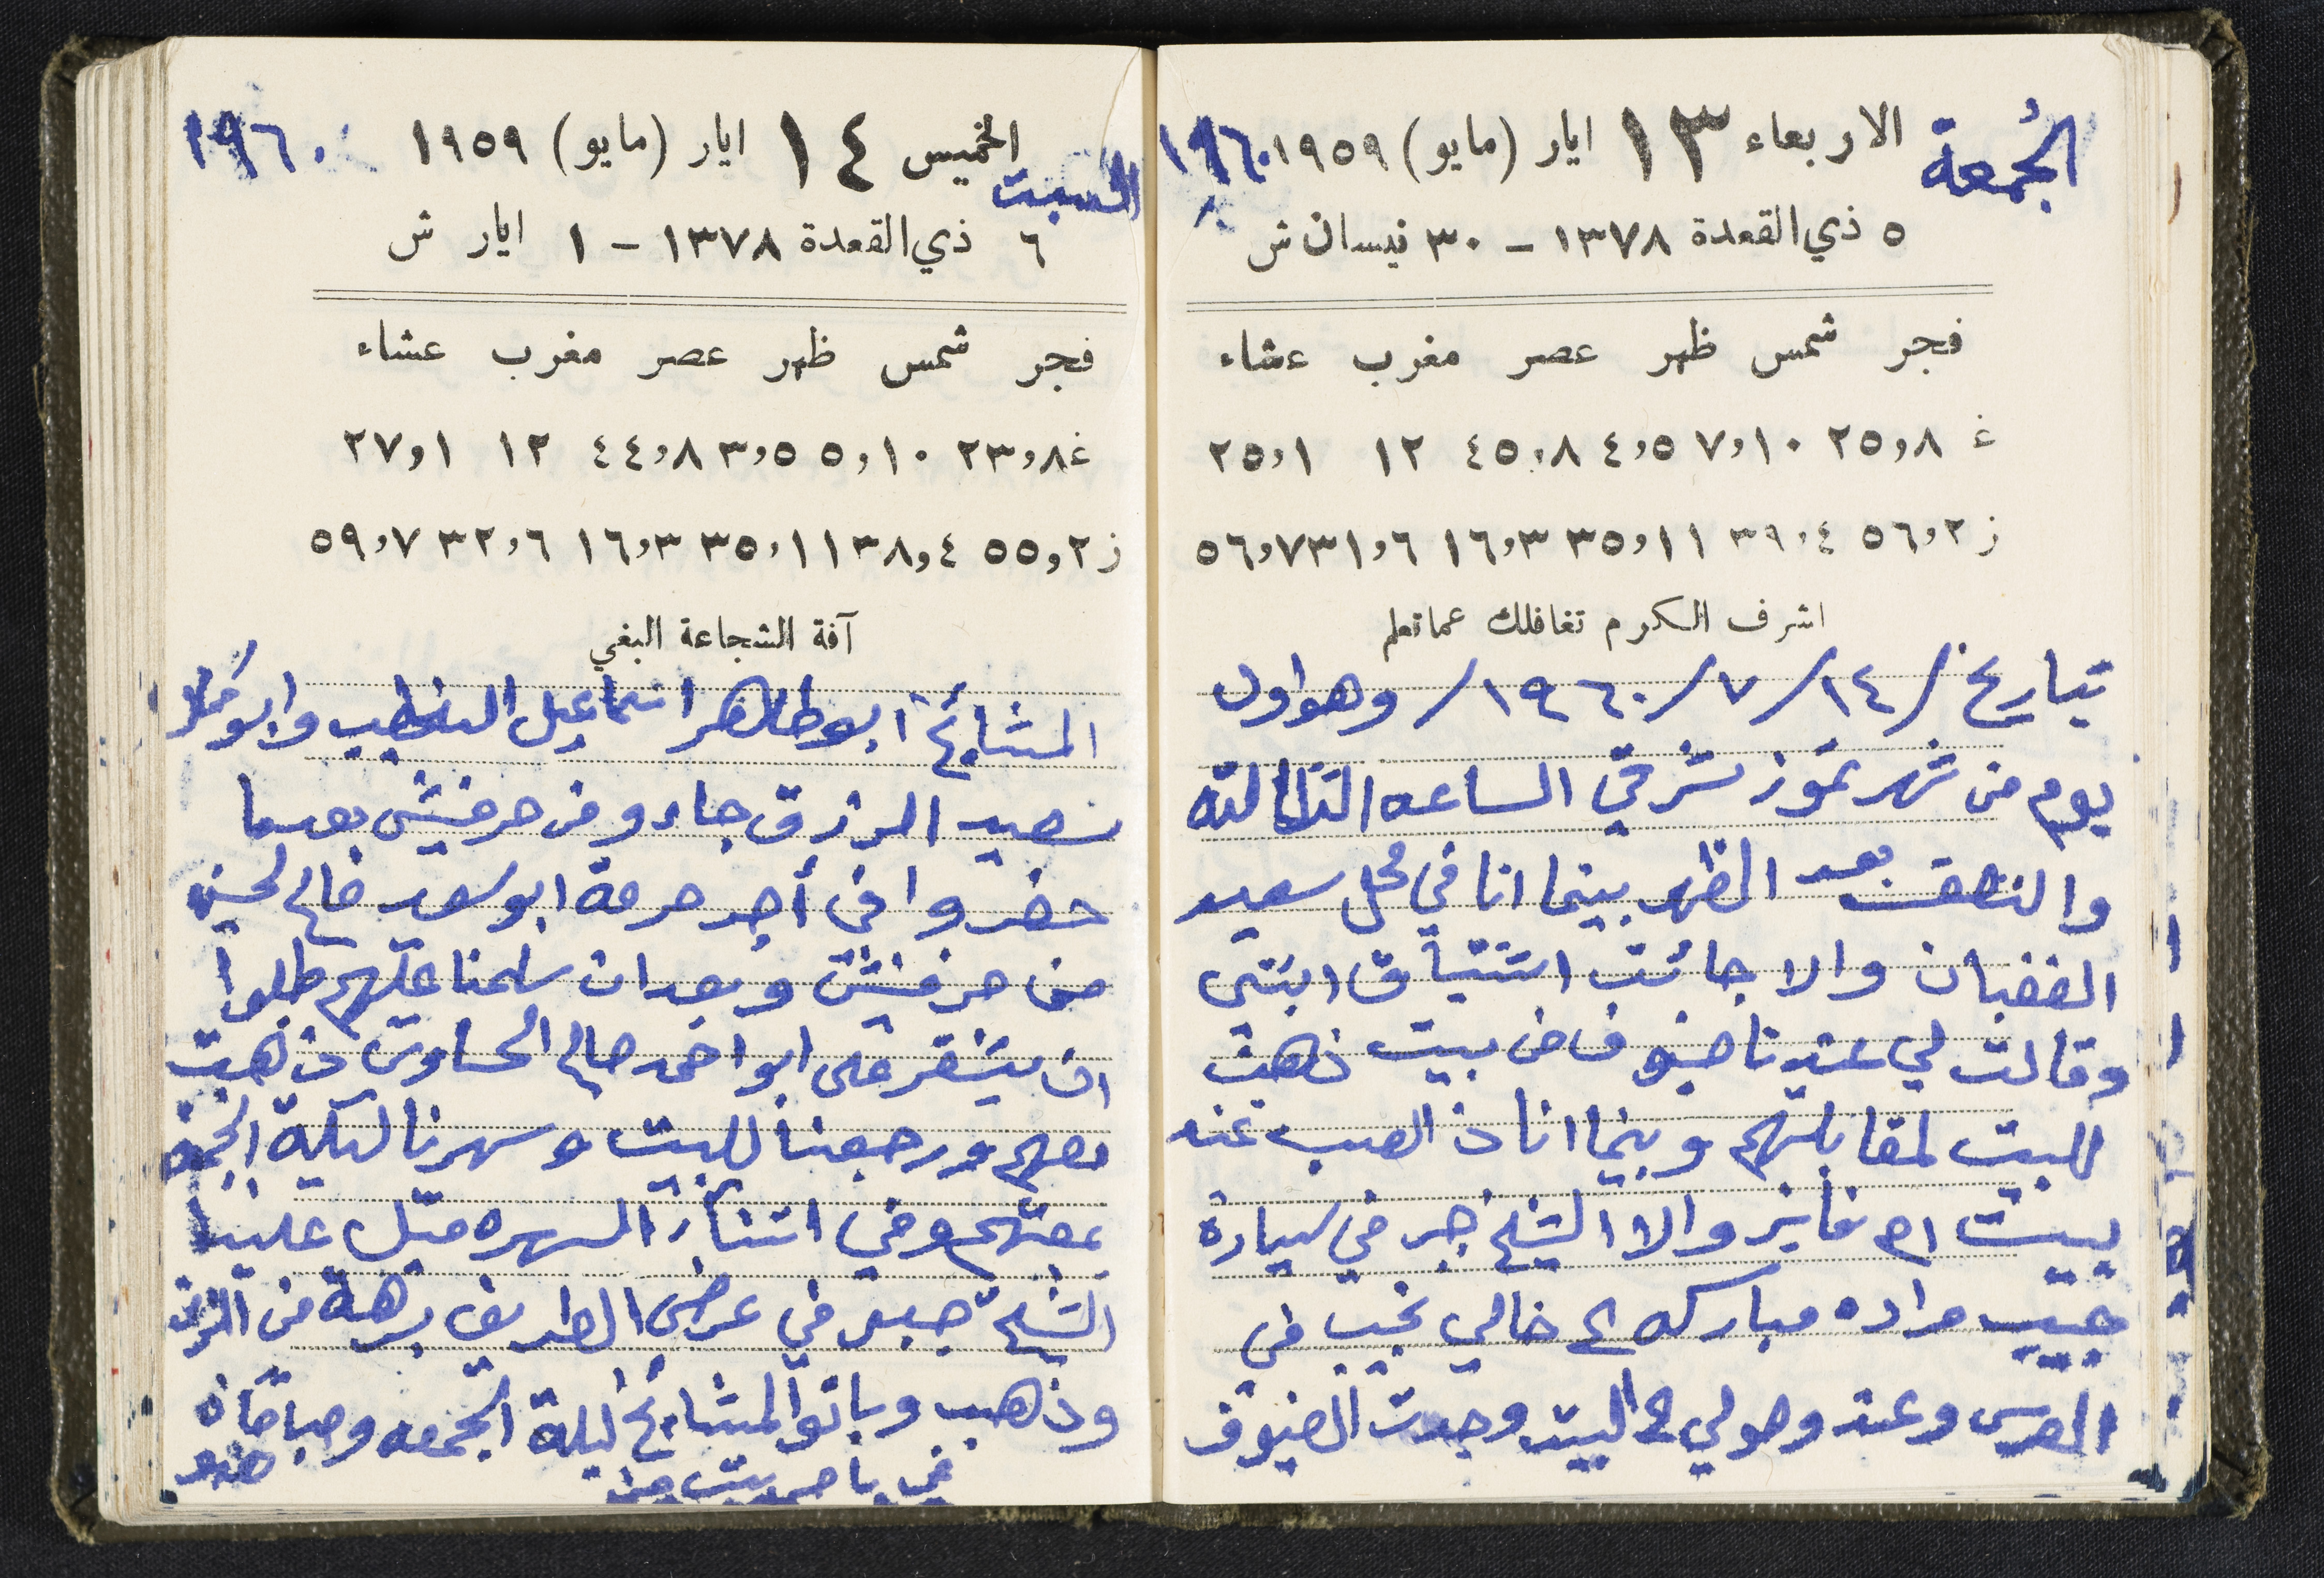 الجُمعة الاربعاء ١٣ ايار (مايو) ١٩٥٩ ١٩٦٠
٥ ذي القعدة ١٣٧٨ – ٣٠ نيسان ش
فجر شمس ظهر عصر مغرب عشاء
غ ٢٥,٨ ٧,١٠ ٤,٥ ٤٥,٨ ١٢ ٢٥,١
ز ٥٦,٢ ٣٩,٤ ٣٥,١١ ١٦,٣ ٣١,٦ ٥٦,٧
اشرف الكرم تغافلك عما تعلم
بتاريخ /١٤/٧/١٩٦٠/ وهو اول
يوم من شهر تموز شرقي الساعه الثالثه
والنصف بعد الظهر بينما انا في محل سعيد
الغضبان والا جائت اشتياق ابنتي
وقالت لي عندنا ضيوف من بيت
للبيت لمقابلتهم وبينما انا ذاهب عند
بيت ام فايز والا الشيخ جبر في سيارة
حبيب مراده مباركه خالي نجيب في
العرس وعند وصولي الى البيت وجدت الضيوف
السبت الخميس ١٤ ايار (مايو) ١٩٥٩ ١٩٦٠
٦ ذي القعدة ١٣٧٨ – ١ ايار ش
فجر شمس ظهر عصر مغرب عشاء
غ ٢٣,٨ ٥,١٠ ٣,٥ ٤٤,٨ ١٢ ٢٧,١
ز ٥٥,٢ ٣٨,٤ ٣٥,١١ ١٦,٣ ٣٢,٦ ٥٩,٧
آفة الشجاعة البغي
المشايخ ابو طاهر اسماعيل الخطيب وابو
سعيد الرزق جاءو من حرفيش بعدما
حضروا في أجر حرمة ابو سعد صالح حسين
من حرفيش وبعد ان سلمنا عليهم طلبوا
ان على ابو احمد صالح الحساوي ذهبت
معهم ورجعنا للبيت وسهرنا ليلة الجمعة
بمعيتهم وفي اثناء السهره ميل علينا
الشيخ جبر في عرض الطريق برهة من الزمن
وذهب وباتوا المشايخ ليلة الجمعه وصباحاً
في باص بيت جن